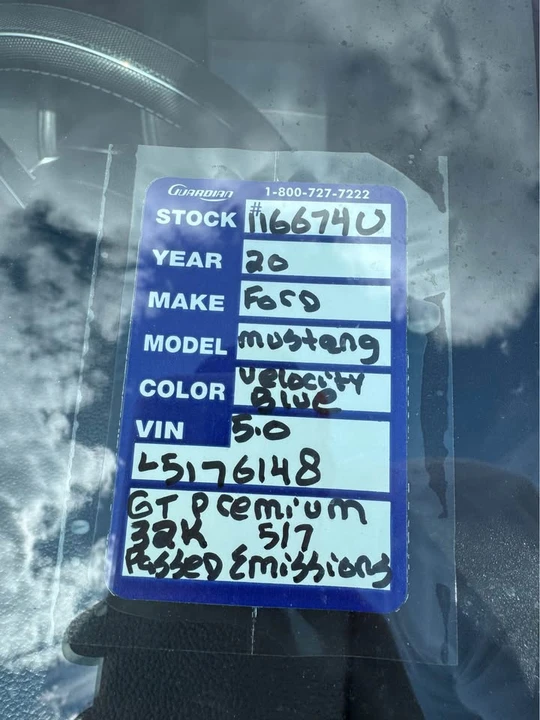 GUARDIAN 1-800-727-7222
STOCK # 116674U
YEAR 20
MAKE Ford
MODEL mustang
COLOR Velocity
Blue
VIN 5.0
L5176148
GT Premium
32K 517
Passed Emissions